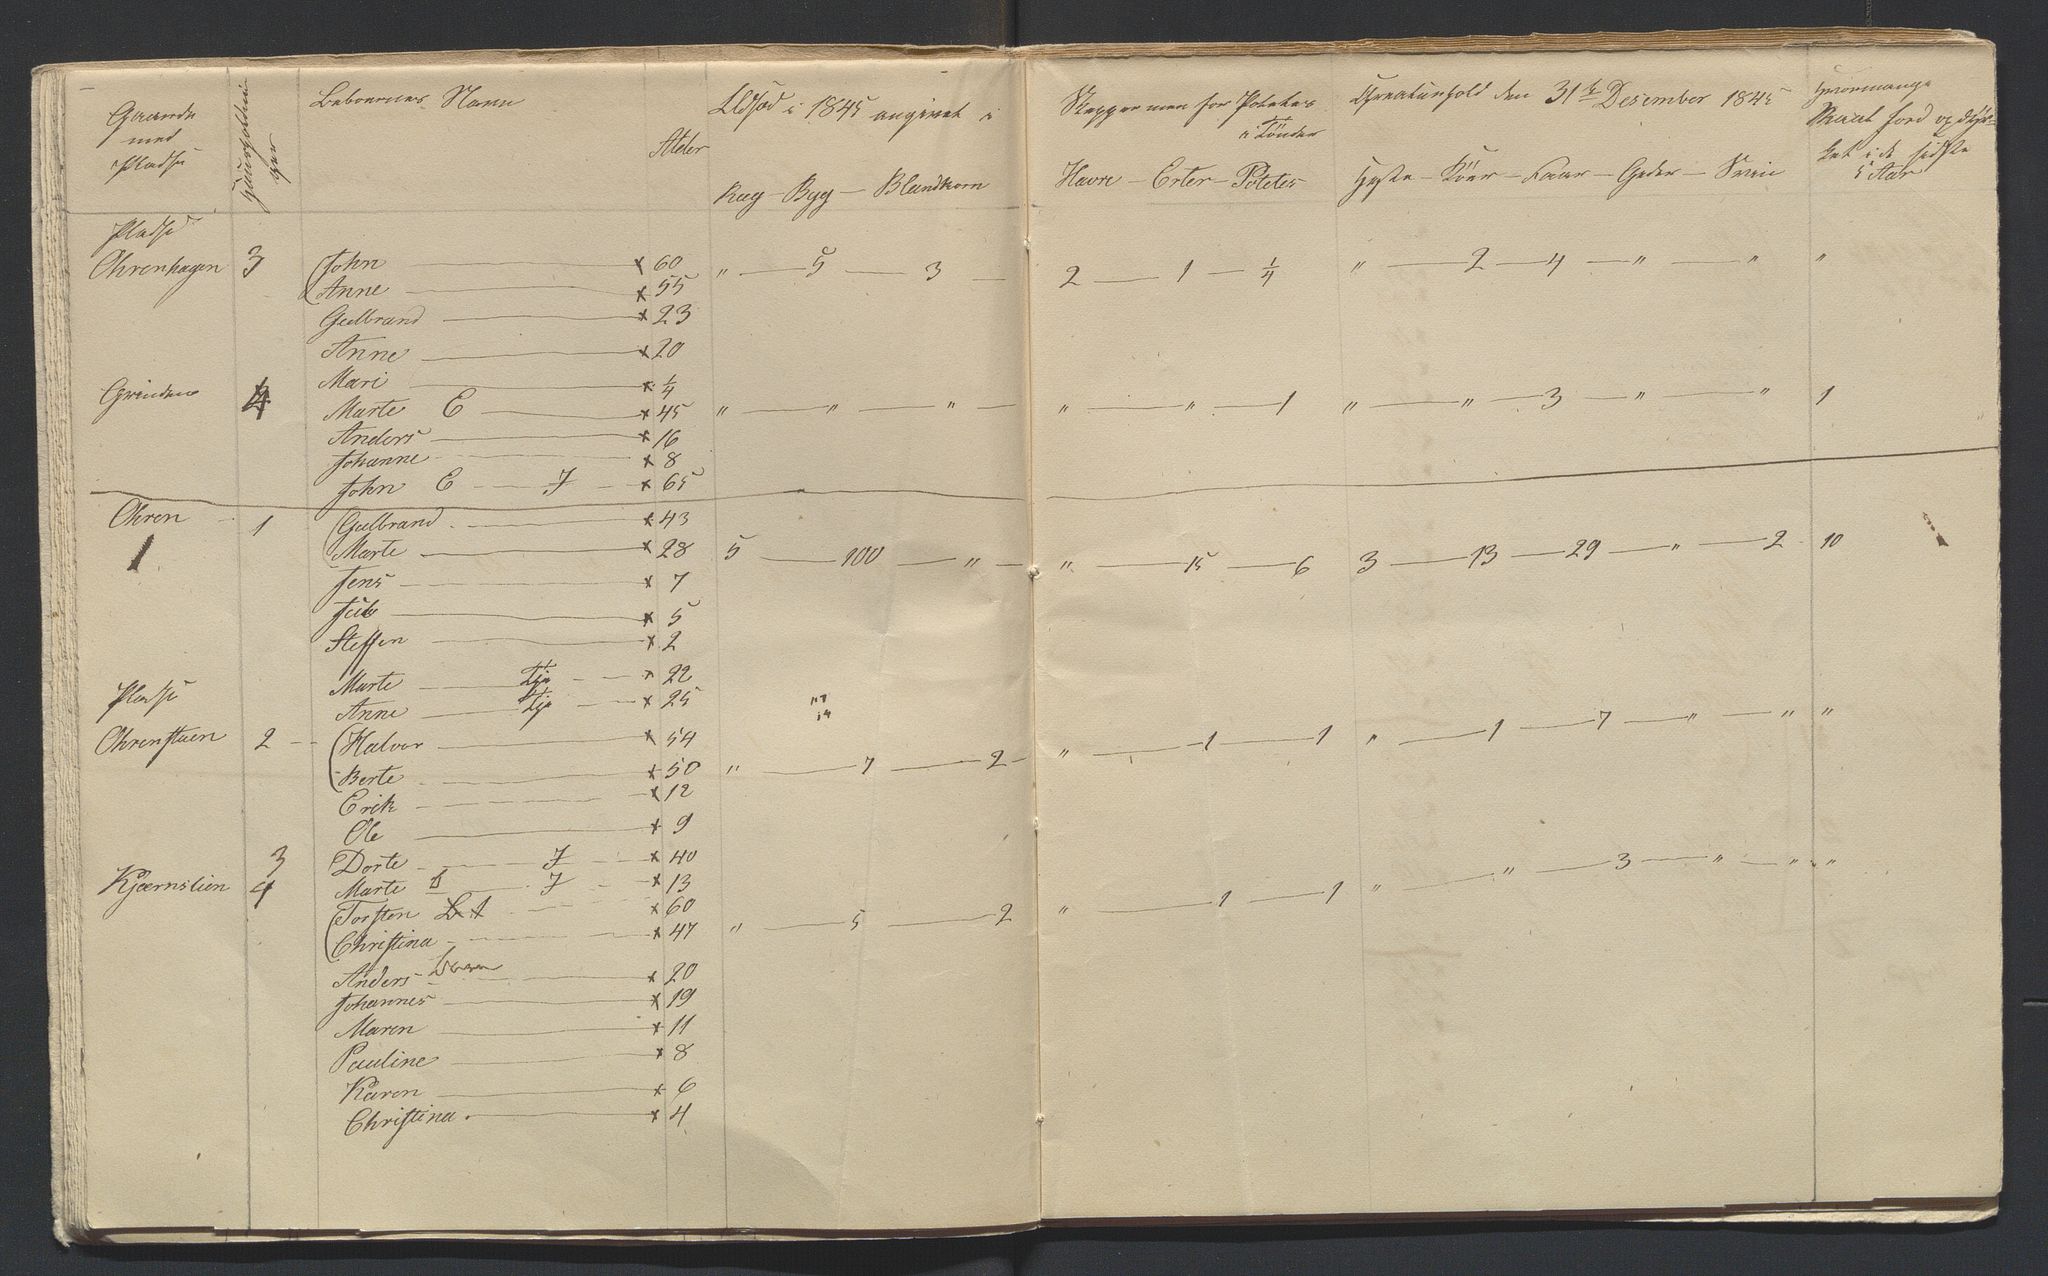 Gaarde med Pladse
Huusholdninger
Beboernes Navn
Alder
Udsæd i 1845 angivet i
Rug - Byg - Blandkorn
Skepper men for Potetes i Tönder
Havre - Erter - Potetes
Creaturhold den 31te Desember 1845
Heste - Köer - Faar - Geder - Sviin
Hvormange Maal Jord opdyrket i de sidste 5 Aar
Pladse
Ohrenhagen 3 John x 60 " 5 3 2 1 1/4 " 2 4 " " "
Anne x 55
Gulbrand x 23
Anne x 20
Mari x 1/4
Grinden 4 Marte E x 45 " " " " " 1 " " 3 " " 1
Anders x 16
Johanne x 8
John E F x 65
Ohren 1 Gulbrand x 43
1 Marte x 28 5 100 " " 15 6 3 13 29 " 2 10
Jens x 7
x 5
Steffen x 2
Marte Tje x 22
Pladse
Anne Tje x 25
Ohrenstuen 2 Halvor x 54
Berte x 50 " 7 2 " 1 1 " 1 7 " " "
Erik x 12
Ole x 9
3 Dorte F x 40
Kjærnslien 4 Marte F x 13
Torsten x 60
Christina x 47 " 5 2 " 1 1 " " 3 " " "
Anders x 20
Johannes x 19
Maren x 11
Pauline x 8
Karen x 6
Christina x 4